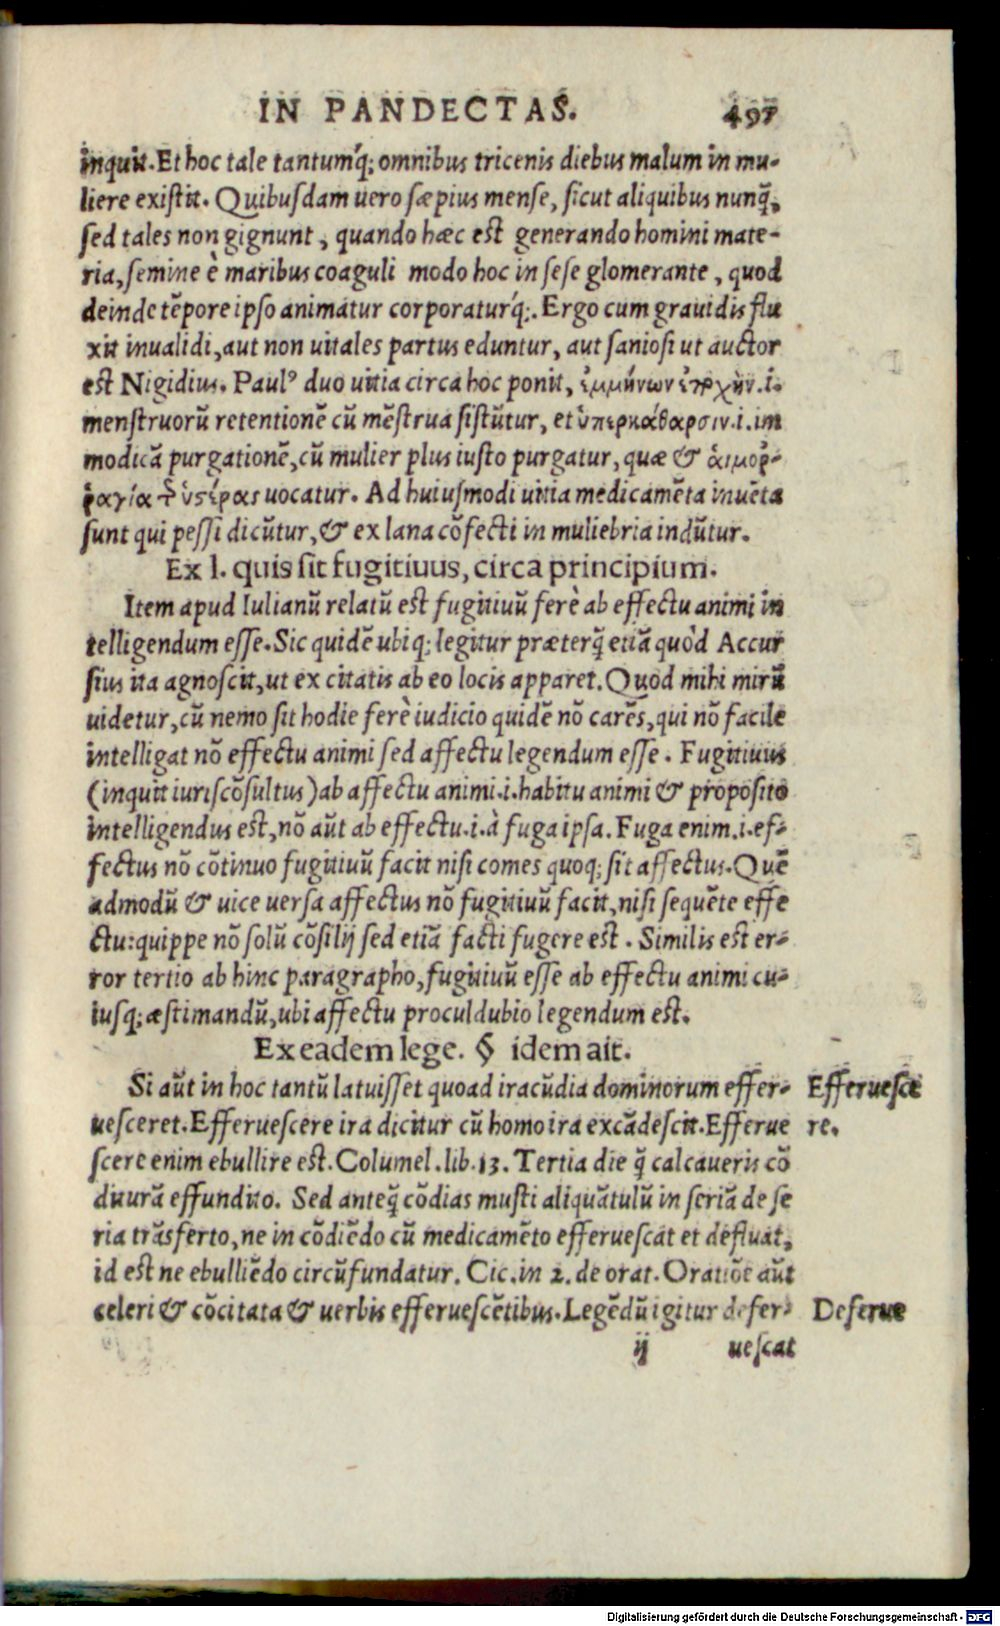 IN PANDECTAS. 497
inquit. Et hoc tale tantumq́; omnibus tricenis diebus malum in mu-
liere existit. Quibusdam uero sæpius mense, sicut aliquibus nunq̃,
sed tales non gignunt, quando hæc est generando homini mate-
ria, semine è maribus coaguli modo hoc in sese glomerante, quod
deinde tẽpore ipso animatur corporaturq́;. Ergo cum grauidis flu
xit inualidi, aut non uitales partus eduntur, aut saniosi ut auctor
est Nigidius. Paulꝰ duo uitia circa hoc ponit, ἐμμήνων ἐποχὴν .i.
menstruorũ retentionẽ cũ mẽstrua sistũtur, et ὑπερκάθαρσιν .i. im
modicã purgationẽ, cũ mulier plus iusto purgatur, quæ & αἱμοῤ-
ῥαγία τ῀ ὑστέρας uocatur. Ad huiusmodi uitia medicamẽta inuẽta
sunt qui pessi dicũtur, & ex lana cõfecti in muliebria indũtur.
Ex l. quis sit fugitiuus, circa principium.
Item apud Iulianũ relatũ est fugitiuũ ferè ab effectu animi in
telligendum esse. Sic quidẽ ubiq; legitur præterq̃ etiã quòd Accur
sius ita agnoscit, ut ex citatis ab eo locis apparet. Quod mihi mirũ
uidetur, cũ nemo sit hodie ferè iudicio quidẽ nõ carẽs, qui nõ facile
intelligat nõ effectu animi sed affectu legendum esse. Fugitiuus
(inquit iuriscõsultus) ab affectu animi .i. habitu animi & proposito
intelligendus est, nõ aũt ab effectu .i. à fuga ipsa. Fuga enim .i. ef-
fectus nõ cõtinuo fugitiuũ facit nisi comes quoq; sit affectus. Quẽ
admodũ & uice uersa affectus nõ fugitiuũ facit, nisi sequẽte effe
ctu: quippe nõ solũ cõsilij sed etiã facti fugere est. Similis est er-
ror tertio ab hinc paragrapho, fugitiuũ esse ab effectu animi cu-
iusq; æstimandũ, ubi affectu proculdubio legendum est.
Ex eadem lege. § idem ait.
Si aũt in hoc tantũ latuisset quoad iracũdia dominorum effer-
Efferuesce
uesceret. Efferuescere ira dicitur cũ homo ira excãdescit. Efferue
re.
scere enim ebullire est. Columel. lib. 13. Tertia die q̃ calcaueris cõ
dituram effundito. Sed anteq̃ cõdias musti aliquãtulũ in seriã de se
ria trãsferto, ne in cõdiẽdo cũ medicamẽto efferuescat et defluat,
id est ne ebulliẽdo circũfundatur. Cic. in 2. de orat. Oratiõe aũt
celeri & cõcitata & uerbis efferuescẽtibus. Legẽdũ igitur defer-
Deferue
ij uescat
Digitalisierung gefördert durch die Deutsche Forschungsgemeinschaft - DFG